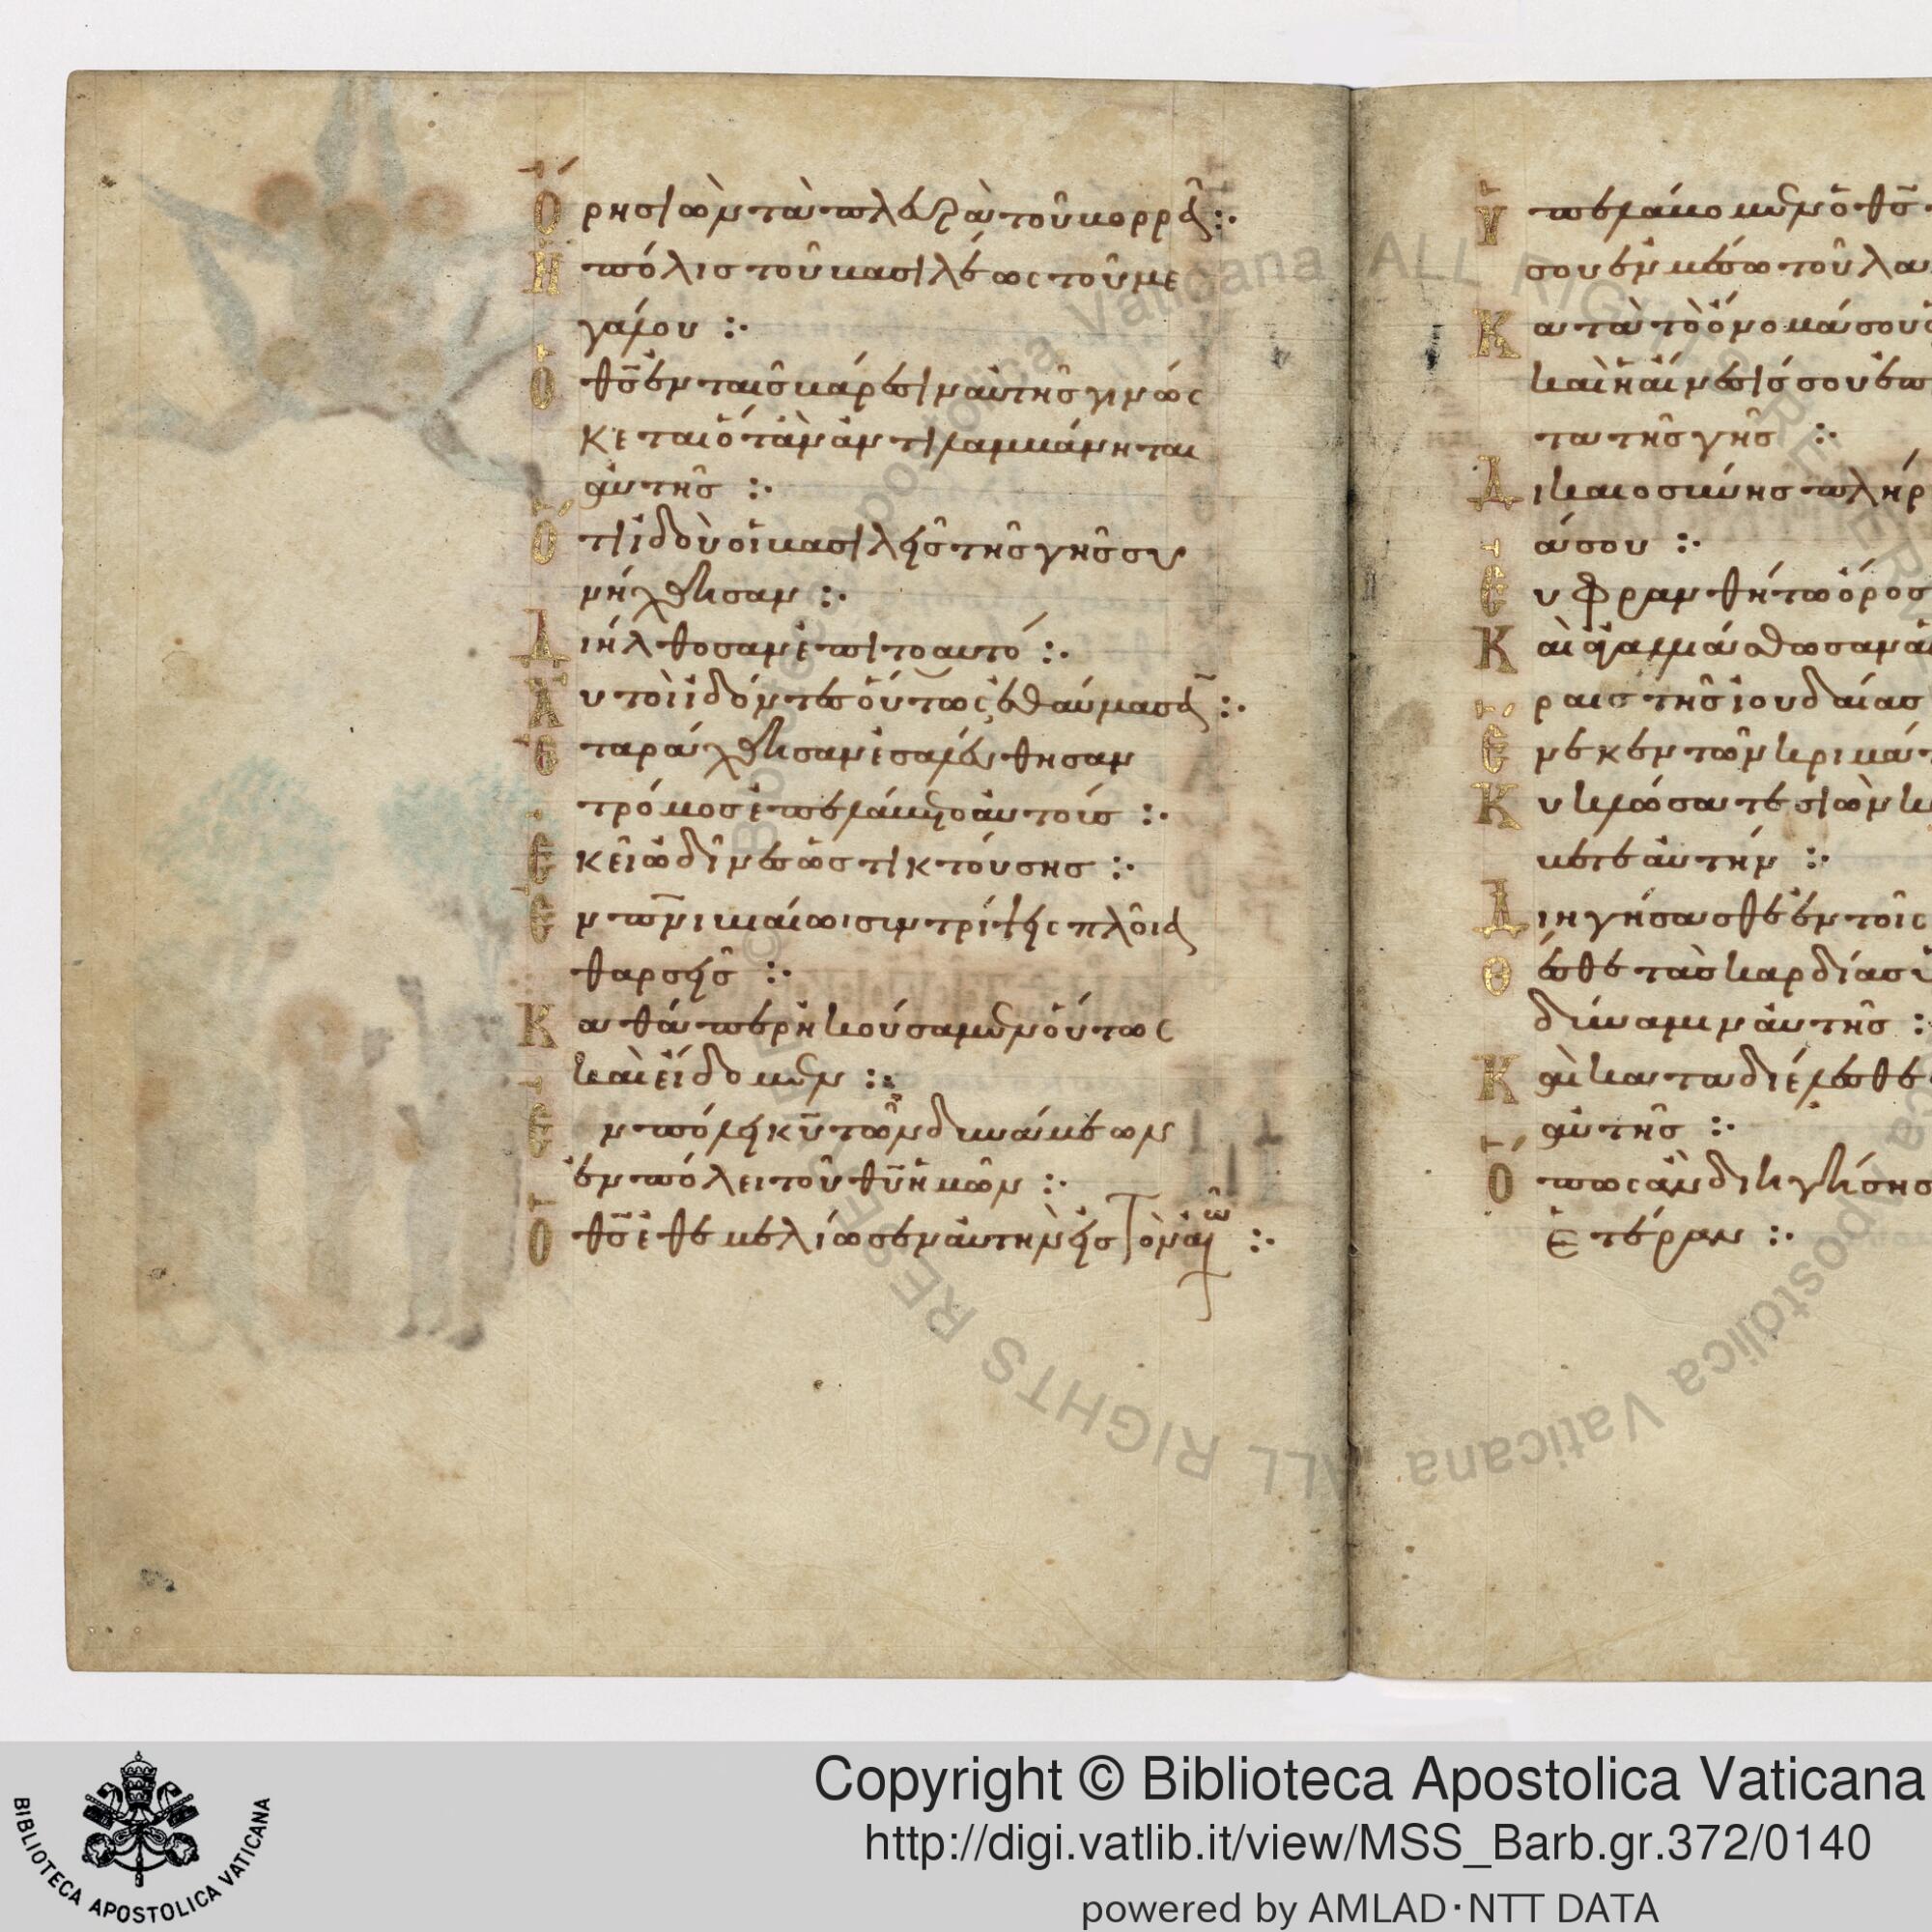 Ὄρη σιὼν τὰ πλευρὰ τοῦ βορρᾶ :·
Ἡ πόλις τοῦ βασιλέως τοῦ με
γάλου :·
Ὁ θς̄ ἐν ταῖς βάρεσιν αὐτῆς γινώς
κεται ὅταν ἀντιλαμβάνηται
αὐτῆς :·
Ὅτι ἰδοὺ οἱ βασιλεῖς τῆς γῆς συ
νήχθησαν :·
Διήλθοσαν ἐπιτοαυτό :·
Αὐτοὶ ἰδόντες οὕτως ἐθαύμασαν :·
Ἐταράχθησαν ἐσαλεύθησαν
τρόμος ἐπελάβετο αὐτοῖς :·
Ἐκεῖ ὠδῖνες ὡς τικτούσης :·
Ἐν πνι βιαίωι συντρίψεις πλοῖα
θαρσεῖς :·
Καθάπερ ἠκούσαμεν οὕτως
καὶ εἴδομεν :·
Ἐν πόλει κῡ τῶν δυνάμεων
ἐν πόλει τοῦ θῡ ἡμῶν :·
Ὁ θς̄ ἐθεμελίωσεν αὐτὴν εἰς τὸν αἰῶ :·
Ὑπελάβομεν ὁ θς̄
σου ἐν μέσω τοῦ λα
Κατὰ τὸ ὄνομά σου
καὶ ἡ αἴνεσίς σου ἐπ
τα τῆς γῆς :·
Δικαιοσύνης πλήρ
ά σου :·
Εὐφρανθήτω ὄρος
Καὶ ἀγαλλιάσθωσαν αἱ
ραις τῆς ἰουδαίας
Ἕνεκεν τῶν κριμάτ
Κυκλώσατε σιὼν κ
βετε αὐτήν :·
Διηγήσασθε ἐν τοῖς
Θέσθε τὰς καρδίας
δύναμιν αὐτῆς :·
Καὶ καταδιέλεσθε
αὐτῆς :·
Ὅπως ἂν διηγήσησ
ἑτέραν :·
© Biblioteca Apostolica Vaticana ALL RIGHTS RESERVED
Copyright © Biblioteca Apostolica Vaticana
http://digi.vatlib.it/view/MSS_Barb.gr.372/0140
powered by AMLAD·NTT DATA
BIBLIOTECA APOSTOLICA VATICANA